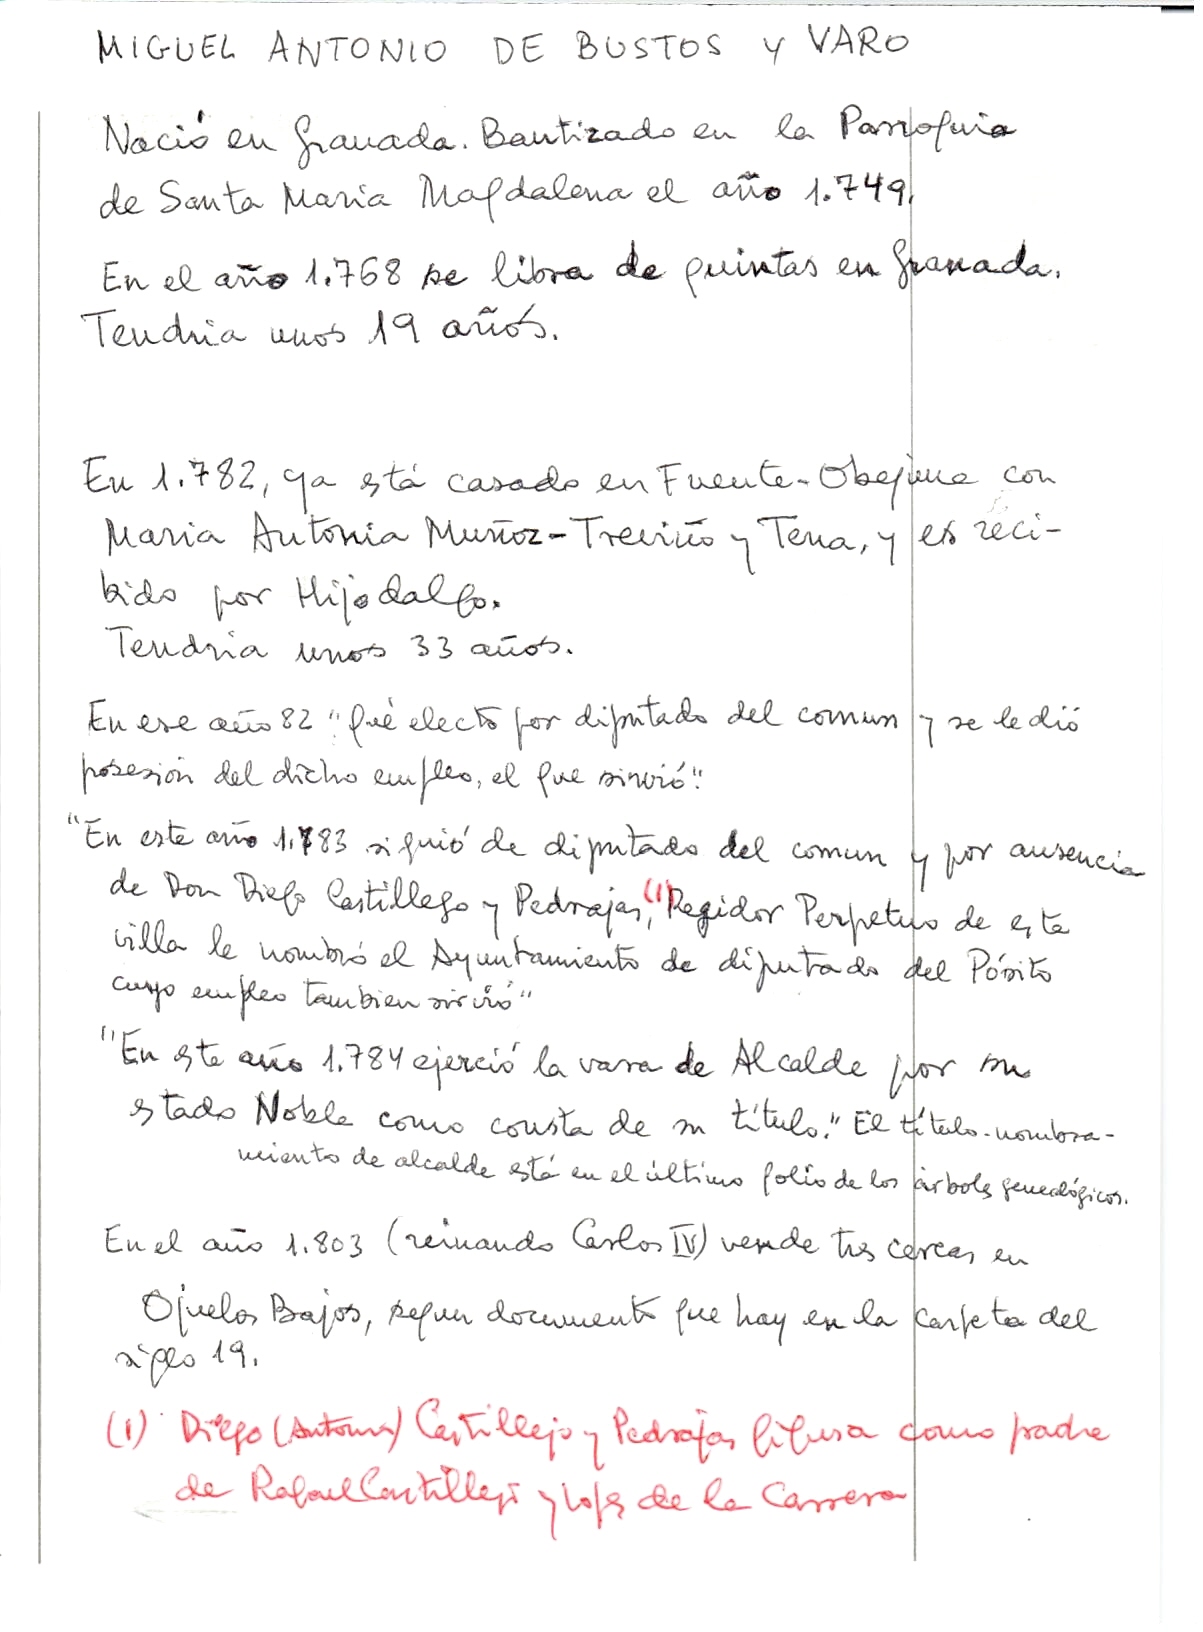 MIGUEL ANTONIO DE BUSTOS Y VARO
Nació en Granada. Bautizado en la Parroquia
de Santa Maria Magdalena el año 1.749.
En el año 1.768 se libra de quintas en Granada.
Tendria unos 19 años.
En 1.782, ya está casado en Fuente-Obejuna con
Maria Antonia Muñoz-Treviño y Tena, y es reci-
bido por Hijodalgo.
Tendria unos 33 años.
En ese año 82 "fué electo por diputado del comun y se le dió
posesión del dicho empleo, el que sirvió."
"En este año 1.783 siguió de diputado del comun y por ausencia
de Don Diego Castillejo y Pedrajas,(1) Regidor Perpetuo de esta
villa le nombró el Ayuntamiento de diputado del Pósito
cuyo empleo tambien sirvió"
"En este año 1.784 ejerció la vara de Alcalde por su
estado Noble como consta de su título." El título-nombra-
miento de alcalde está en el último folio de los árboles genealógicos.
En el año 1.803 (reinando Carlos IV) vende tres cercas en
Ojuelos Bajos, segun documento que hay en la carpeta del
siglo 19.
(1) Diego (Antonio) Castillejo y Pedrajas figura como padre
de Rafael Castillejo y López de la Carrera